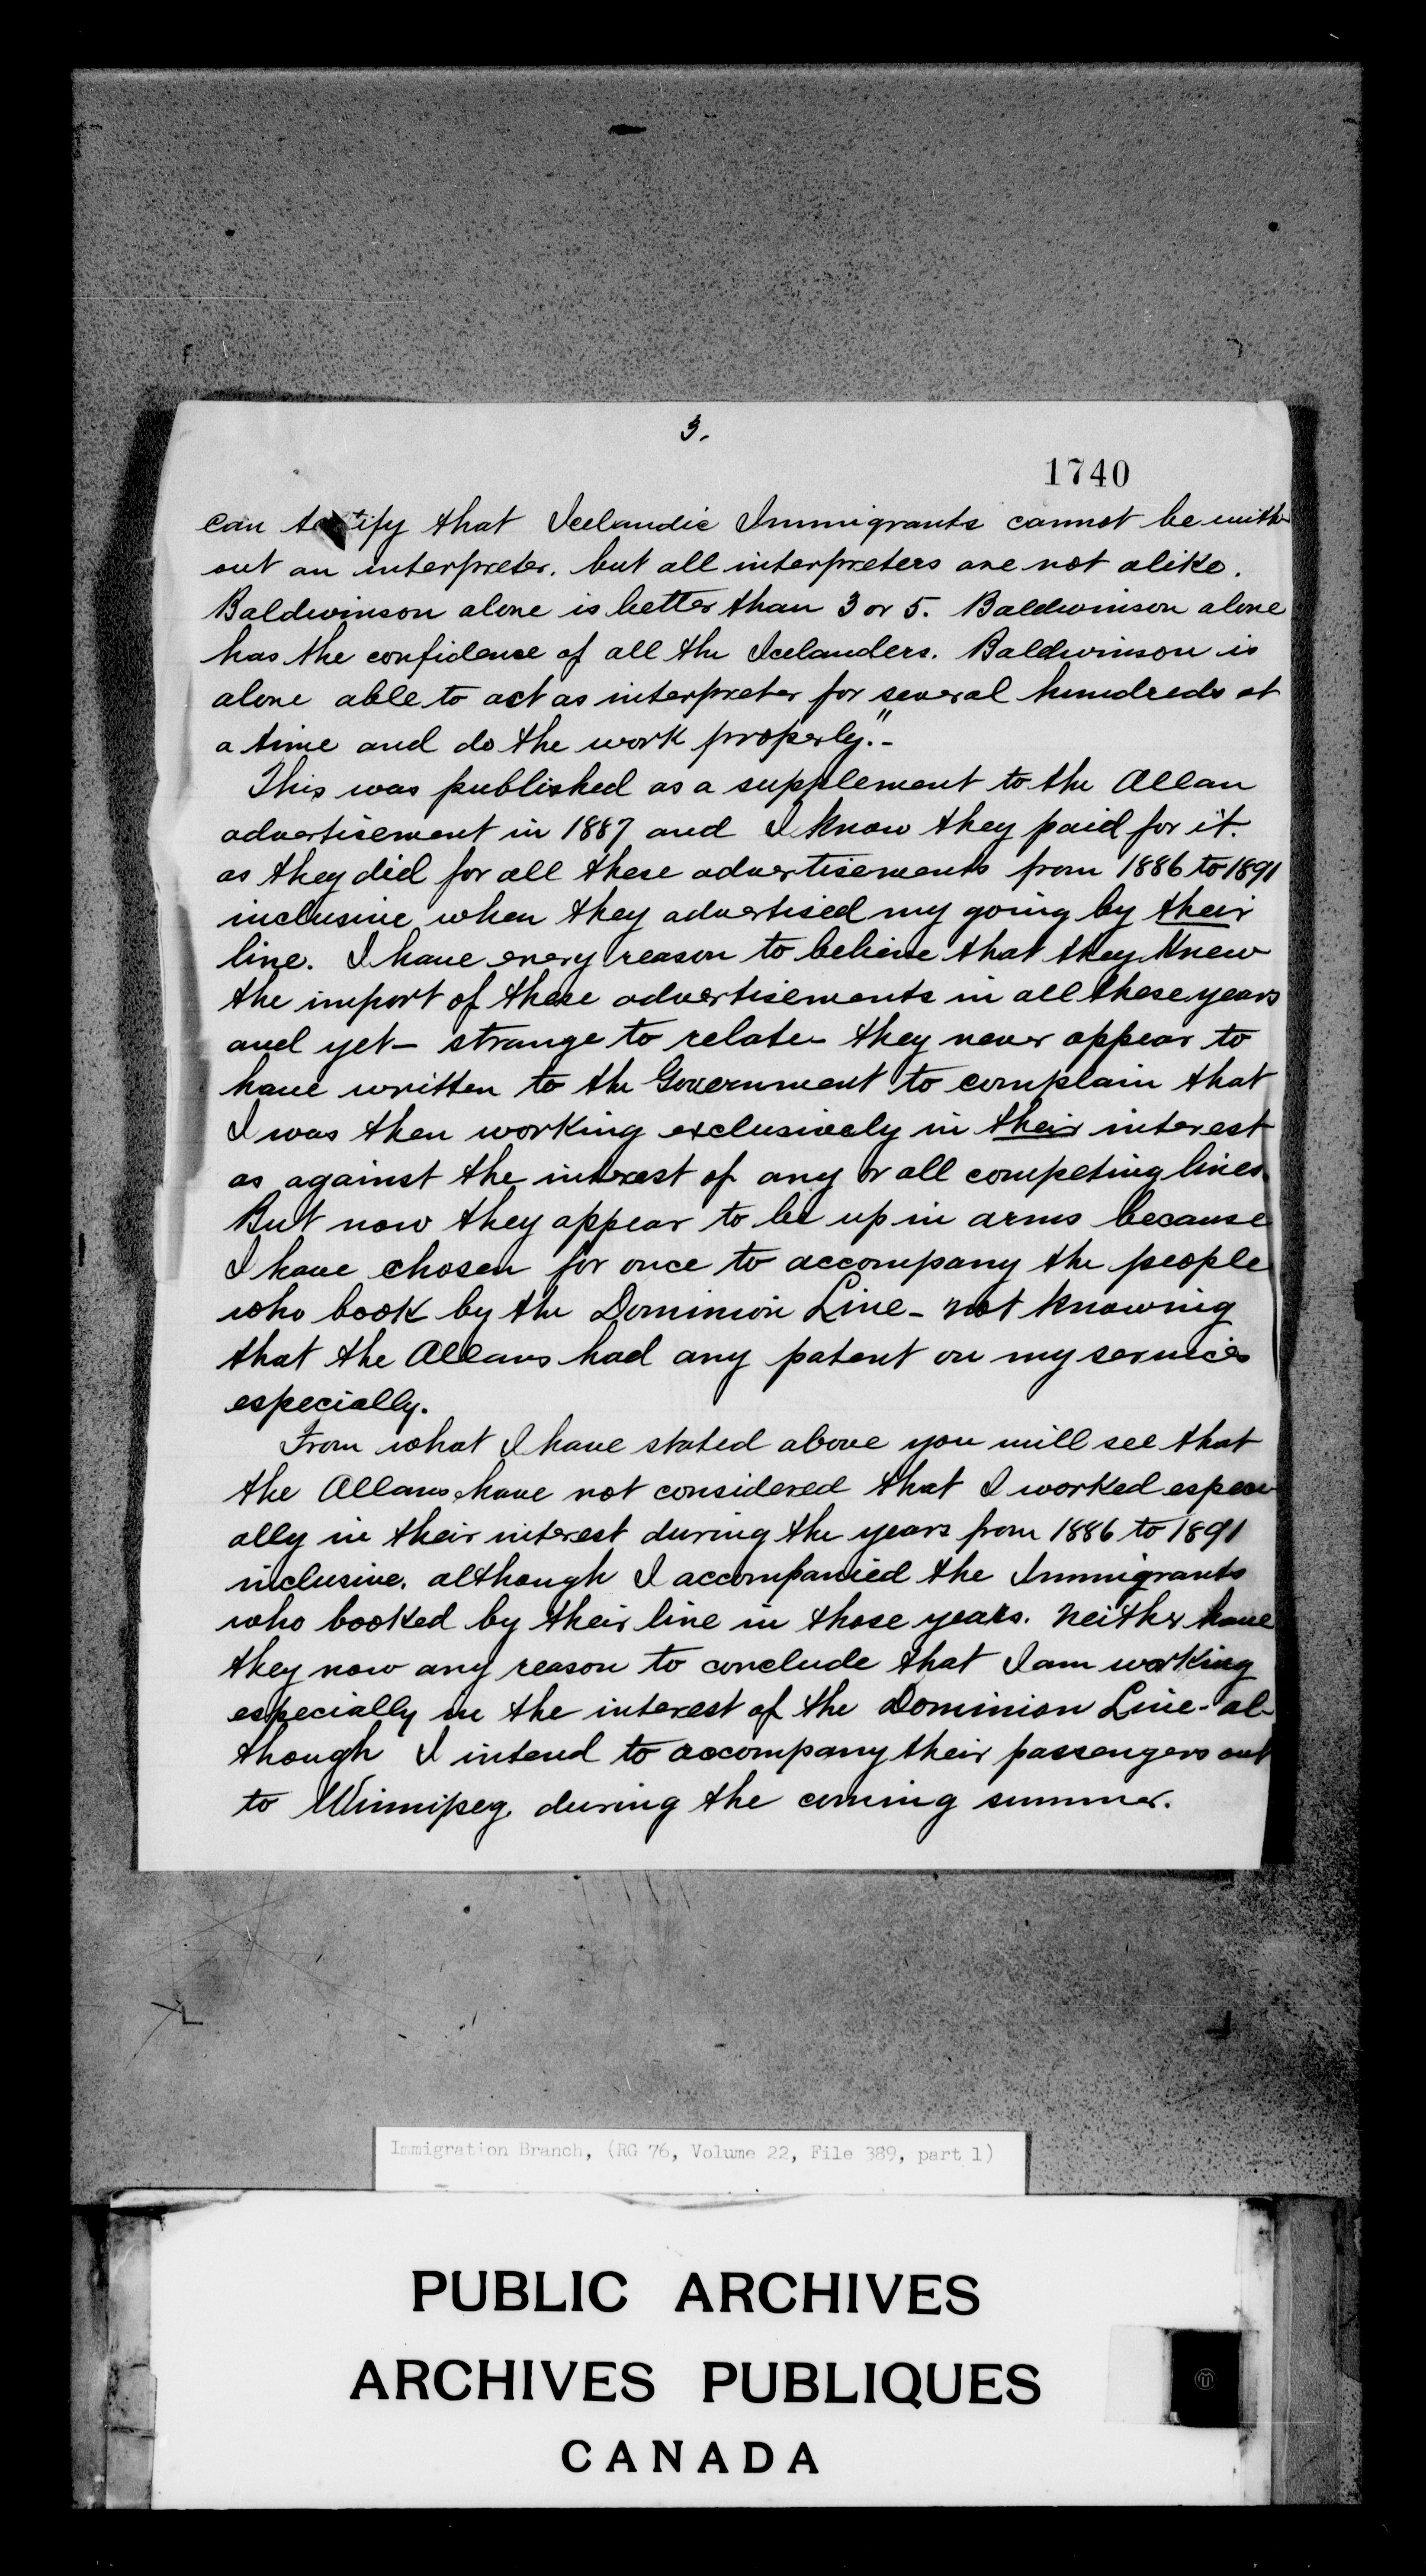 3.
1740
can testify that Icelandic Immigrants cannot be with
out an interpreter. but all interpreters are not alike.
Baldwinson alone is better than 3 or 5. Baldwinson alone
has the confidence of all the Icelanders. Baldwinson is
alone able to act as interpreter for several hundreds at
a time and do the work properly."-
This was published as a supplement to the Allan
advertisement in 1887 and I know they paid for it.
as they did for all these advertisements from 1886 to 1891
inclusive when they advertised my going by their
line. I have every reason to believe that they knew
the import of these advertisements in all these years
and yet - strange to relate - they never appear to
have written to the Government to complain that
I was then working exclusively in their interest
as against the interest of any or all competing lines.
But now they appear to be up in arms because
I have chosen for once to accompany the people
who book by the Dominion Line - not knowing
that the Allans had any patent on my services
especially.
From what I have stated above you will see that
the Allans have not considered that I worked especi
ally in their interest during the years from 1886 to 1891
inclusive. although I accompanied the Immigrants
who booked by their line in those years. Neither have
they now any reason to conclude that I am working
especially in the interest of the Dominion Line - al-
though I intend to accompany their passengers out
to Winnipeg during the coming summer.
Immigration Branch, (RG 76, Volume 22, File 389, part 1)
PUBLIC ARCHIVES
ARCHIVES PUBLIQUES
CANADA